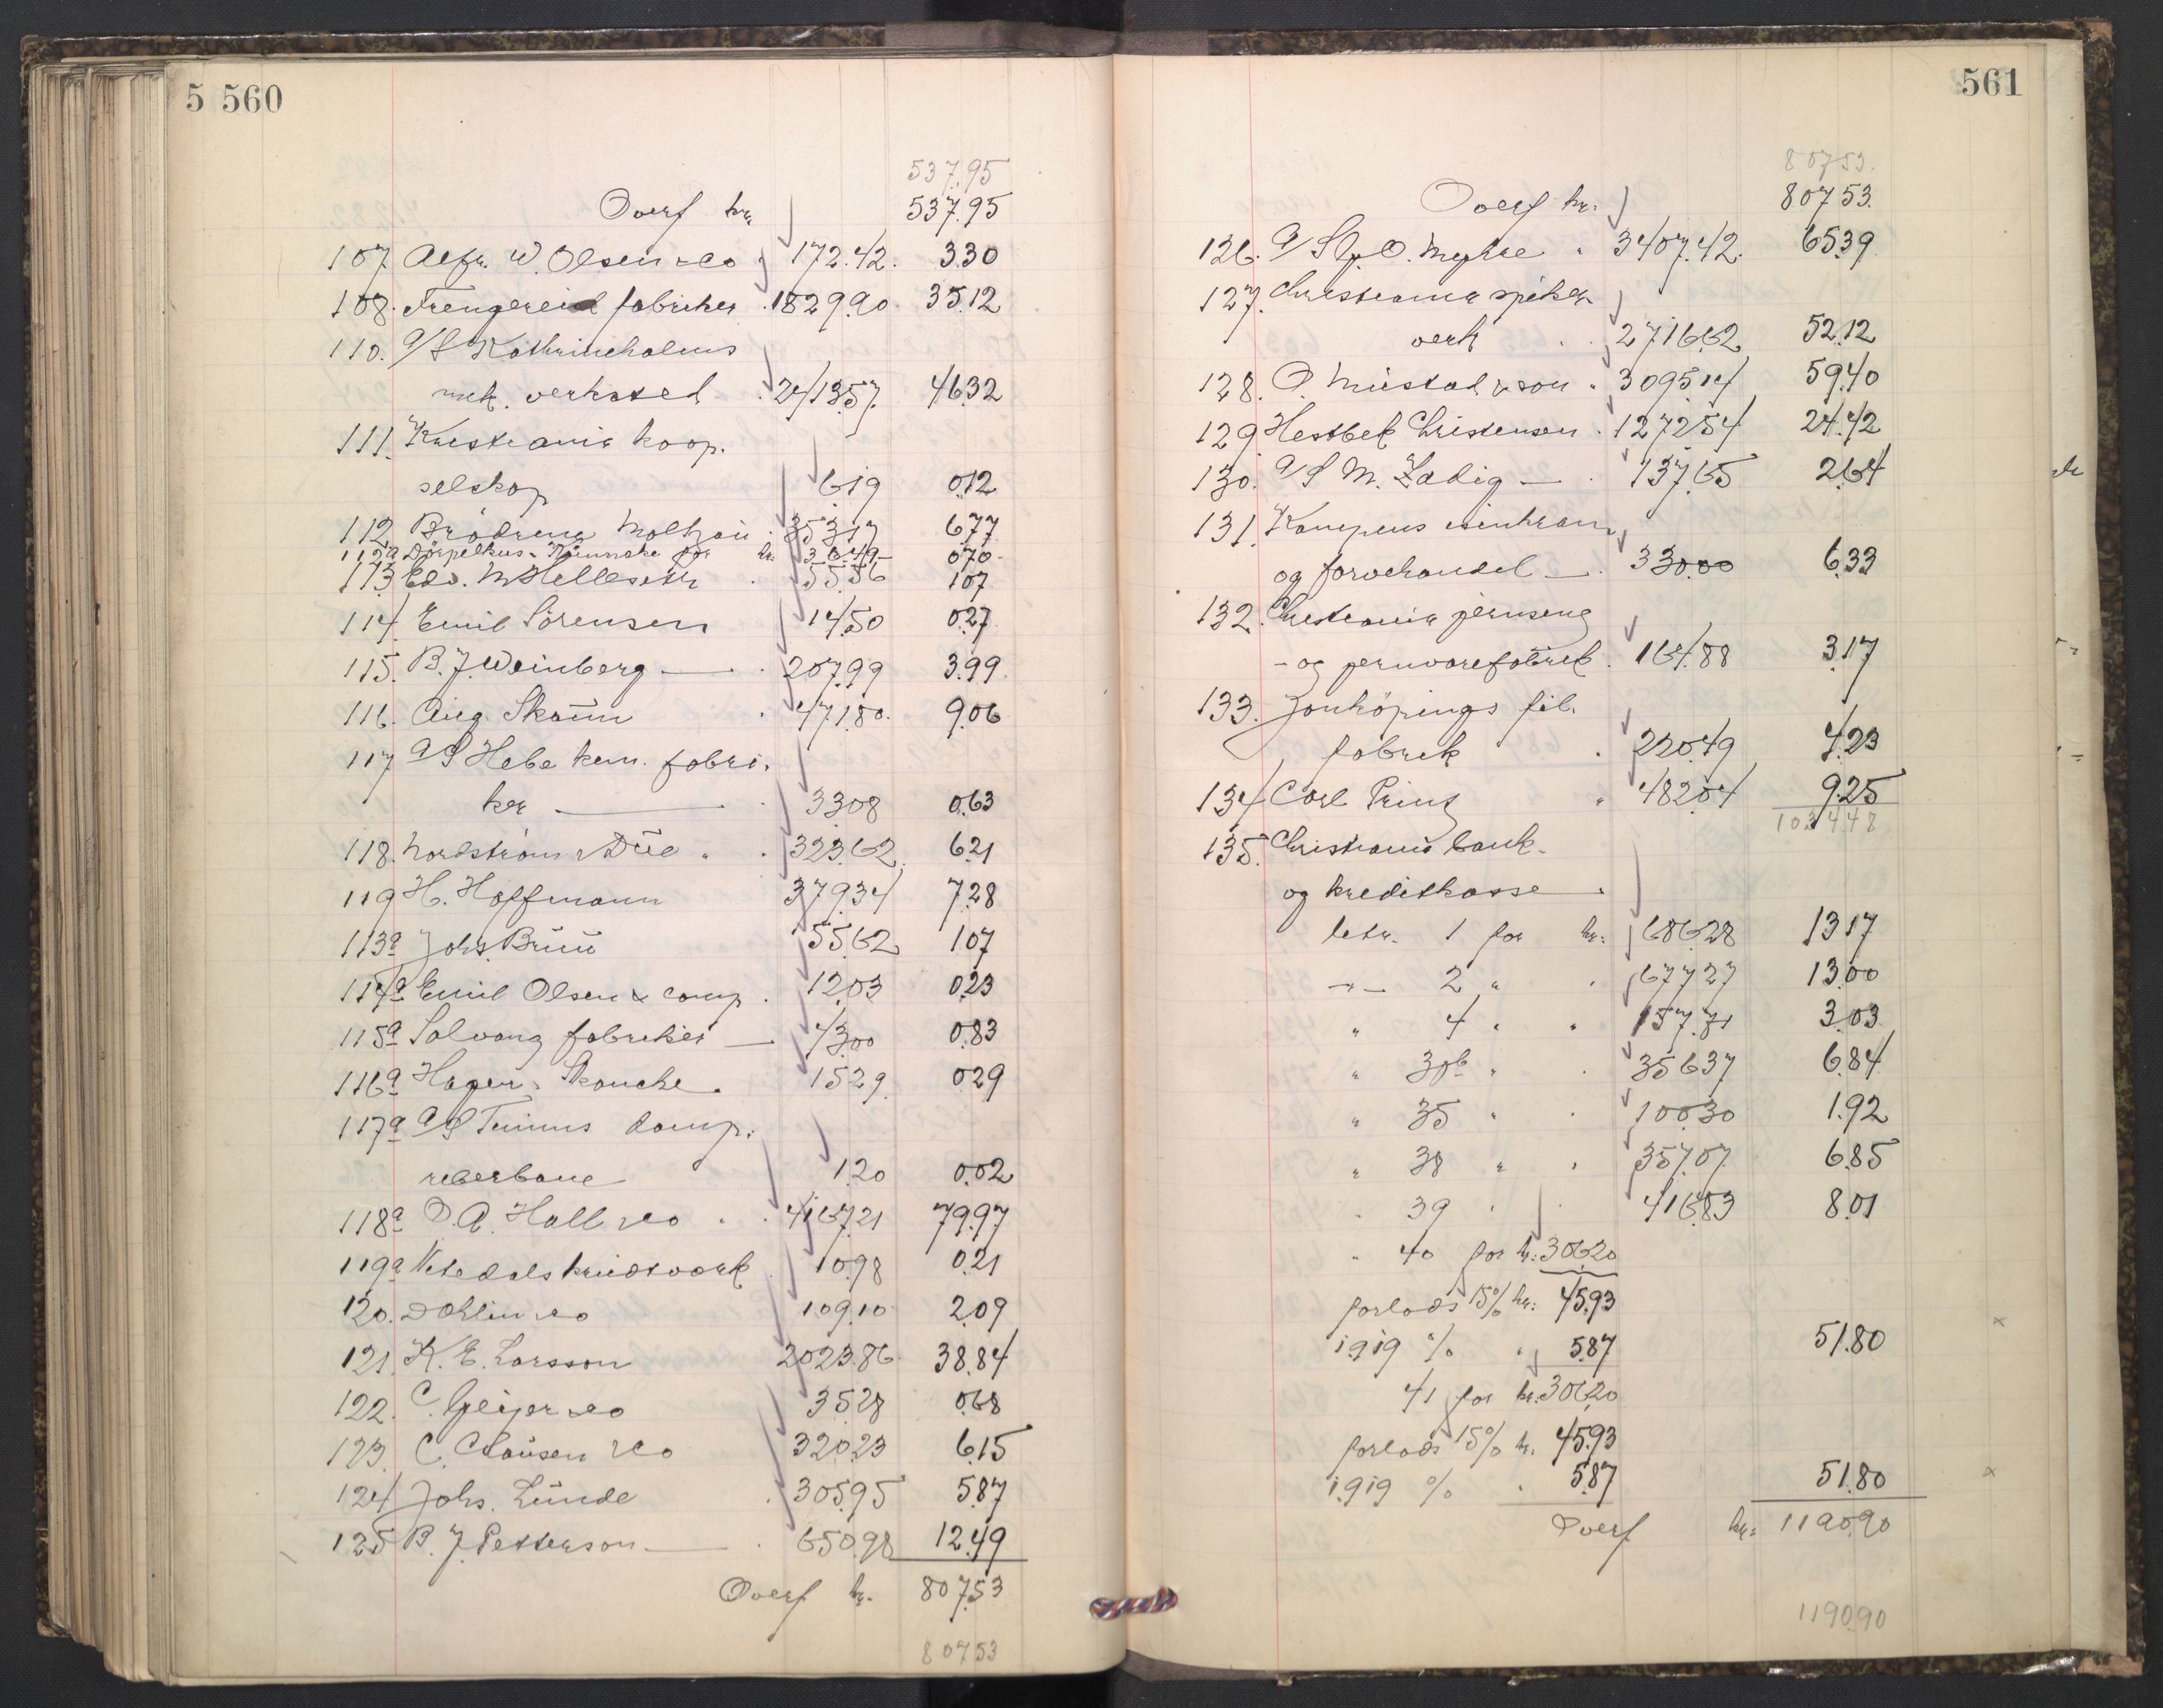 5 560
537.95
Overf kr. 537.95
107. Alfr. W. Olsen & Co 172.42. 3.30
108. Trengereid fabriker 1829.90 35.12
110. A/S Kathrineholms
mek. verksted 2413.57 46.32
111. Kristiania koop.
selskap 6.19 0.12
112 Brødrene Moltzau 353.17 6.77
112a for kr. 36.49 0.70
113 Edv. M Hellesen 55.56 1.07
114. Emil Sörensen 14.50 0.27
115. B. J. Weinberg — 207.99 3.99
116. Aug. Skaun 471.80 9.06
117 A/S Hebe kem. fabri-
ker — 33.08 0.63
118. Nordström & Due 323.62 6.21
119 H. Hoffmann 379.34 7.28
113a Johs. Bruu 55.62 1.07
114a Emil Olsen & comp. 12.03 0.23
115a Solvang fabriker — 43.00 0.83
116a Hagen & Skanche 15.29 0.29
117a A/S Tunns damp.
reberbane 1.20 0.02
118a O. A. Hall & Co 4167.21 79.97
119a kridtverk 10.98 0.21
120. Dahlin & Co 109.10 2.09
121. K. E. Larsson 2023.86 38.84
122. C. Geijer & Co 35.28 0.68
123. C. Clausen & Co 320.23 6.15
124 Johs. Lunde 305.95 5.87
125 B. J. Petterson — 650.98 12.49
Overf kr. 807.53
807.53
561
807.53.
Overf kr. 807.53.
126. A/S O. Myhre 3407.42. 65.39
127. Christiania spiker-
verk 2716.62 52.12
128. O. Mustad & søn 3095.14 59.40
129. Hestbek Christensen 1272.54 24.42
130. A/S M. Zadig — 137.65 2.64
131. Kampens isenkram
og farvehandel — 330.00 6.33
132. Christiania jernseng
- og jernvarefabrik. 164.88 3.17
133. Jonköpings fil.
fabrik 220.49 4.23
134 Carl Prinz 482.04 9.25
1034.48
135. Christiania bank-
og kreditkasse
letr. 1 for kr: 686.28 13.17
-"- 2 " 677.27 13.00
" 4 " " 157.71 3.03
" 30b " 356.37 6.84
" 35 " 100.30 1.92
" 38 " 357.07 6.85
" 39 " 416.83 8.01
" 40 for kr: 306.20
forlods 15% kr: 45.93
1.919 % " 5.87 51.80
41 for kr. 306.20
forlods 15% kr. 45.93
1.919 % 5.87 51.80
Overf kr: 1190.90
1190.90